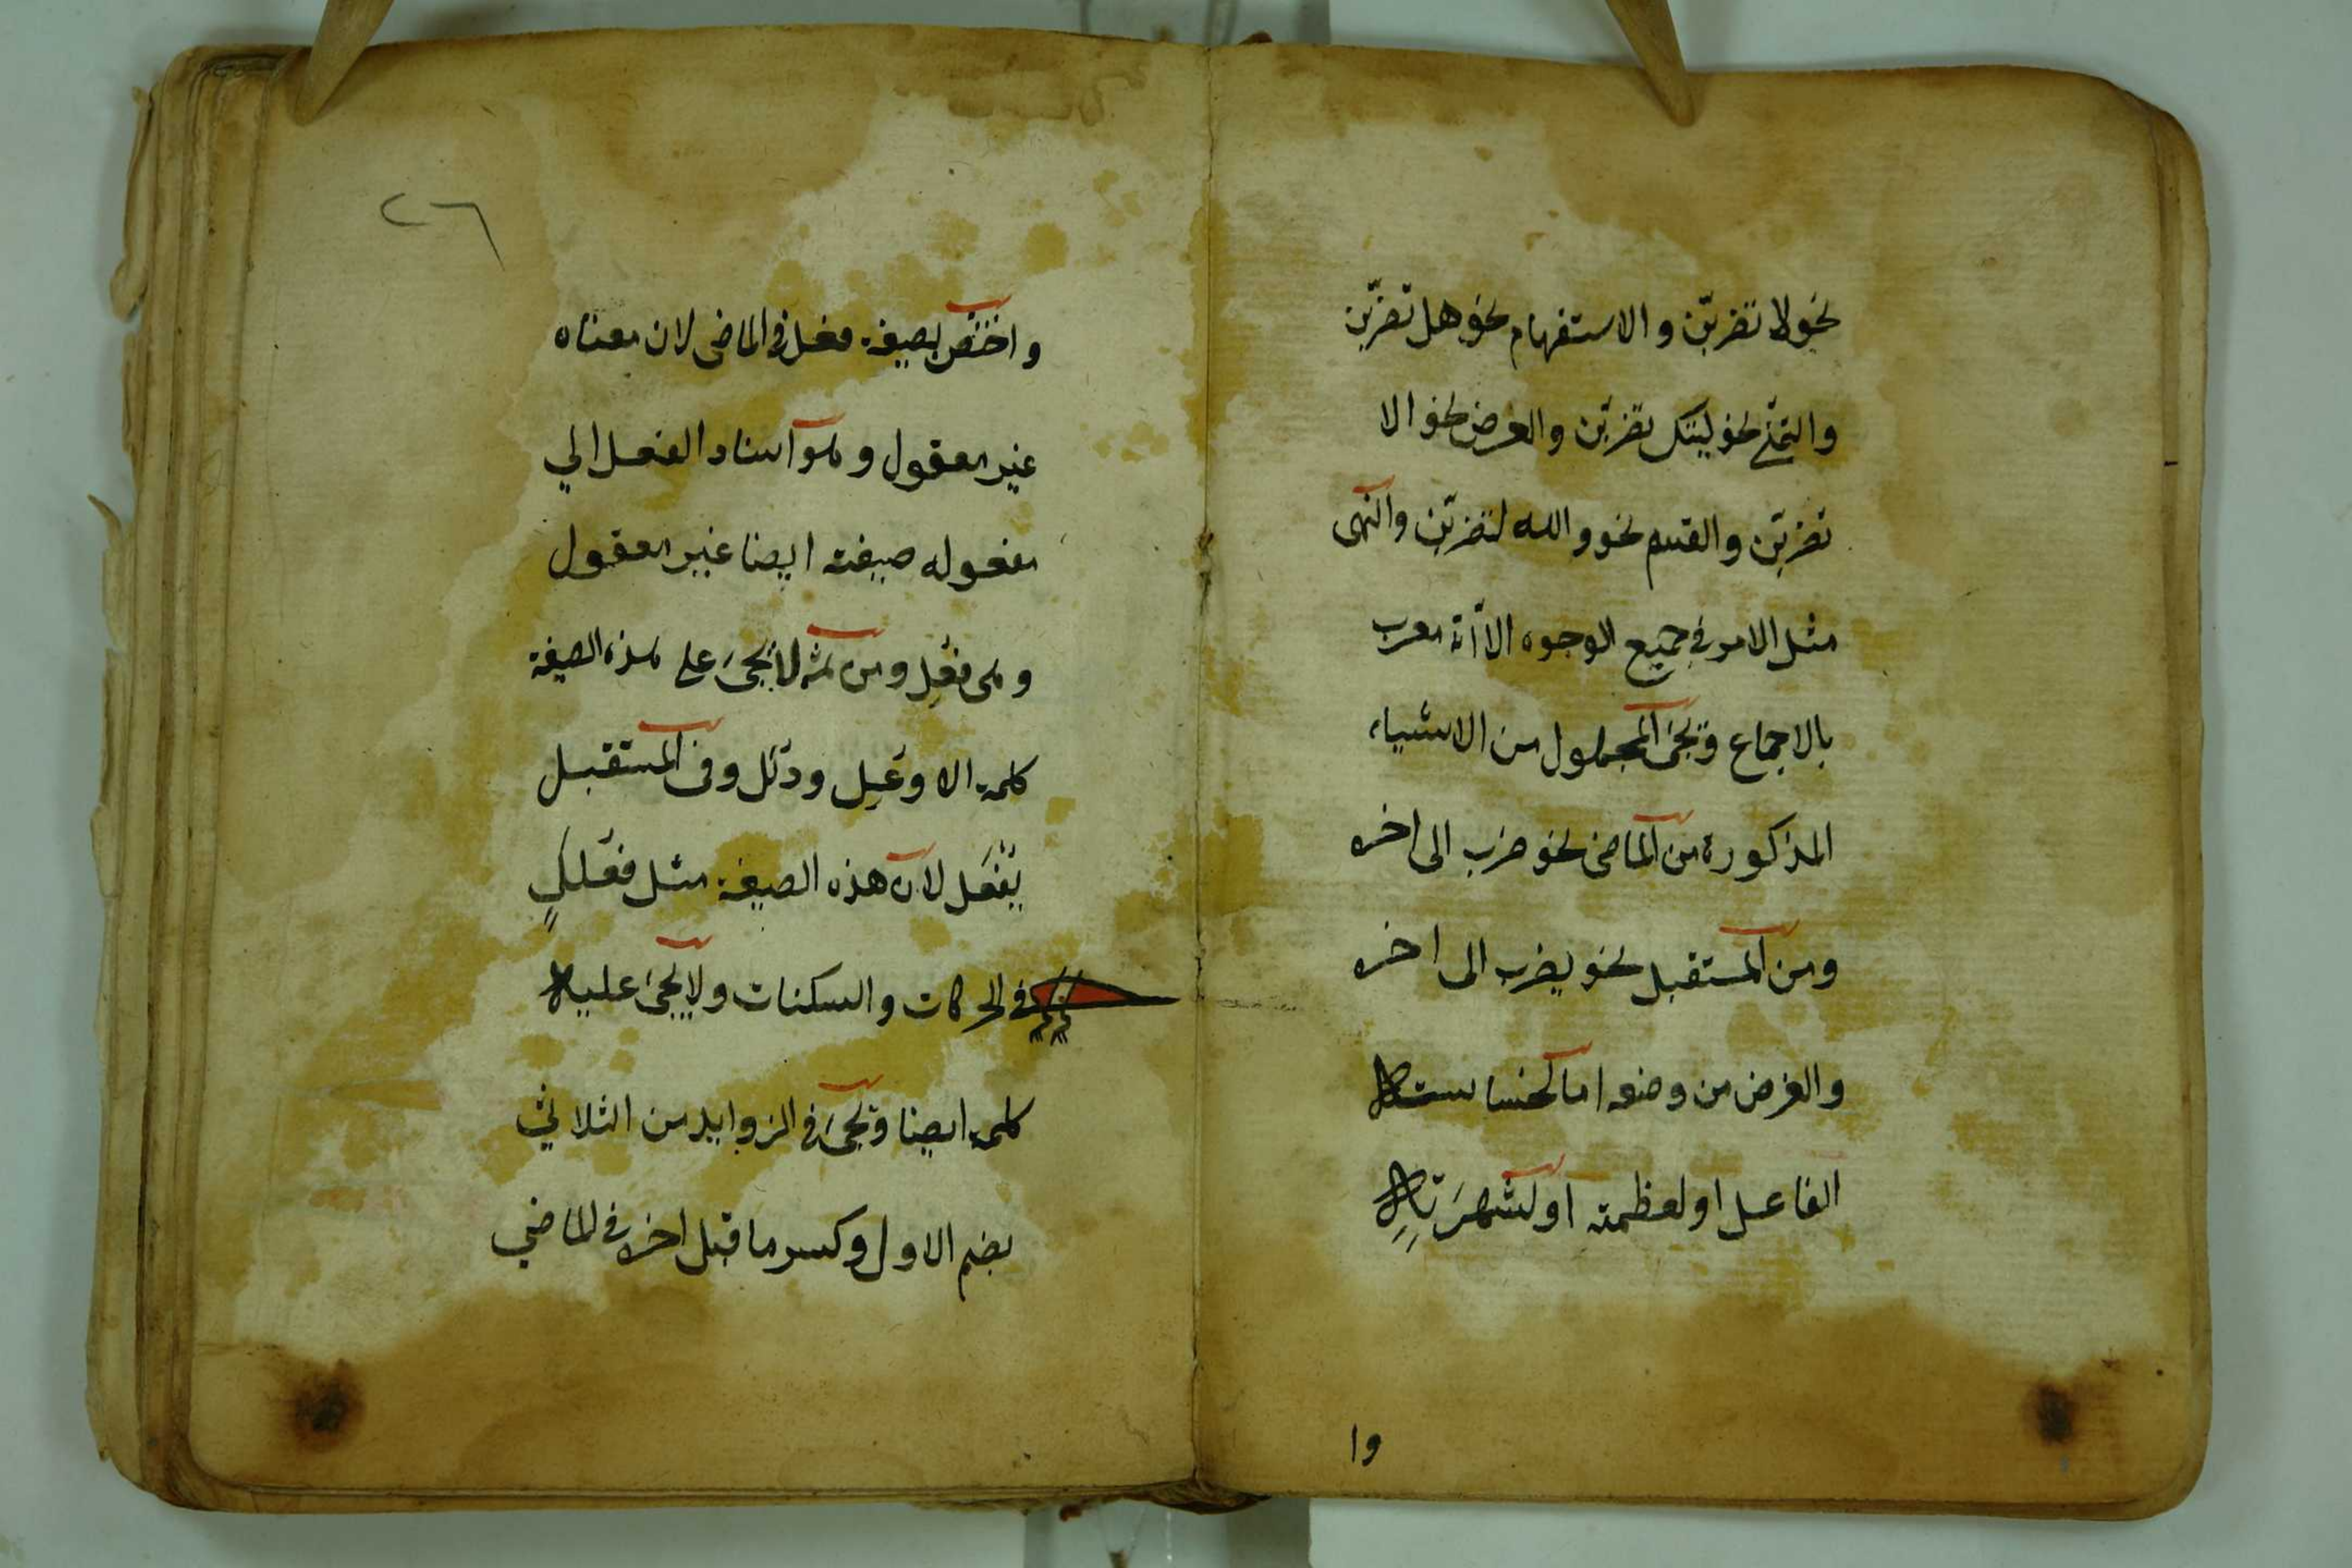 نحو لا تضربّن والاستفهام نحو هل تضربّن
والتمنّي نحو ليتك تضربّن والعرض نحو الا
تضربّن والقسم نحو والله لتضربّن والنهى
مثل الامر في جميع الوجوه الا أنّه معرب
بالاجماع ويجئ المجهول من الاشياء
المذكورة من الماضى نحو ضرب الى اخره
ومن المستقبل نحو يضرب الى اخره
والغرض من وضعه اما لخساسته
الفاعل او لعظمته او لشهرته
وا
٢٦
واختصّ بصيغة فعل في الماضى لان معناه
غير معقول وهو اسناد الفعل الي
مفعوله صيغته ايضا غير معقول
وهى فُعِل ومن ثمه لا يجئ على هذه الصيغة
كلمة الا وُعِل ودُئل وفى المستقبل
يُفْعَل لان هذه الصيغة مثل فعلل
في الحركات والسكنات ولا يجئ عليه
كلمة ايضا ويجئ في الزوايد من الثلاثي
بضم الاول وكسر ما قبل اخره في الماضي